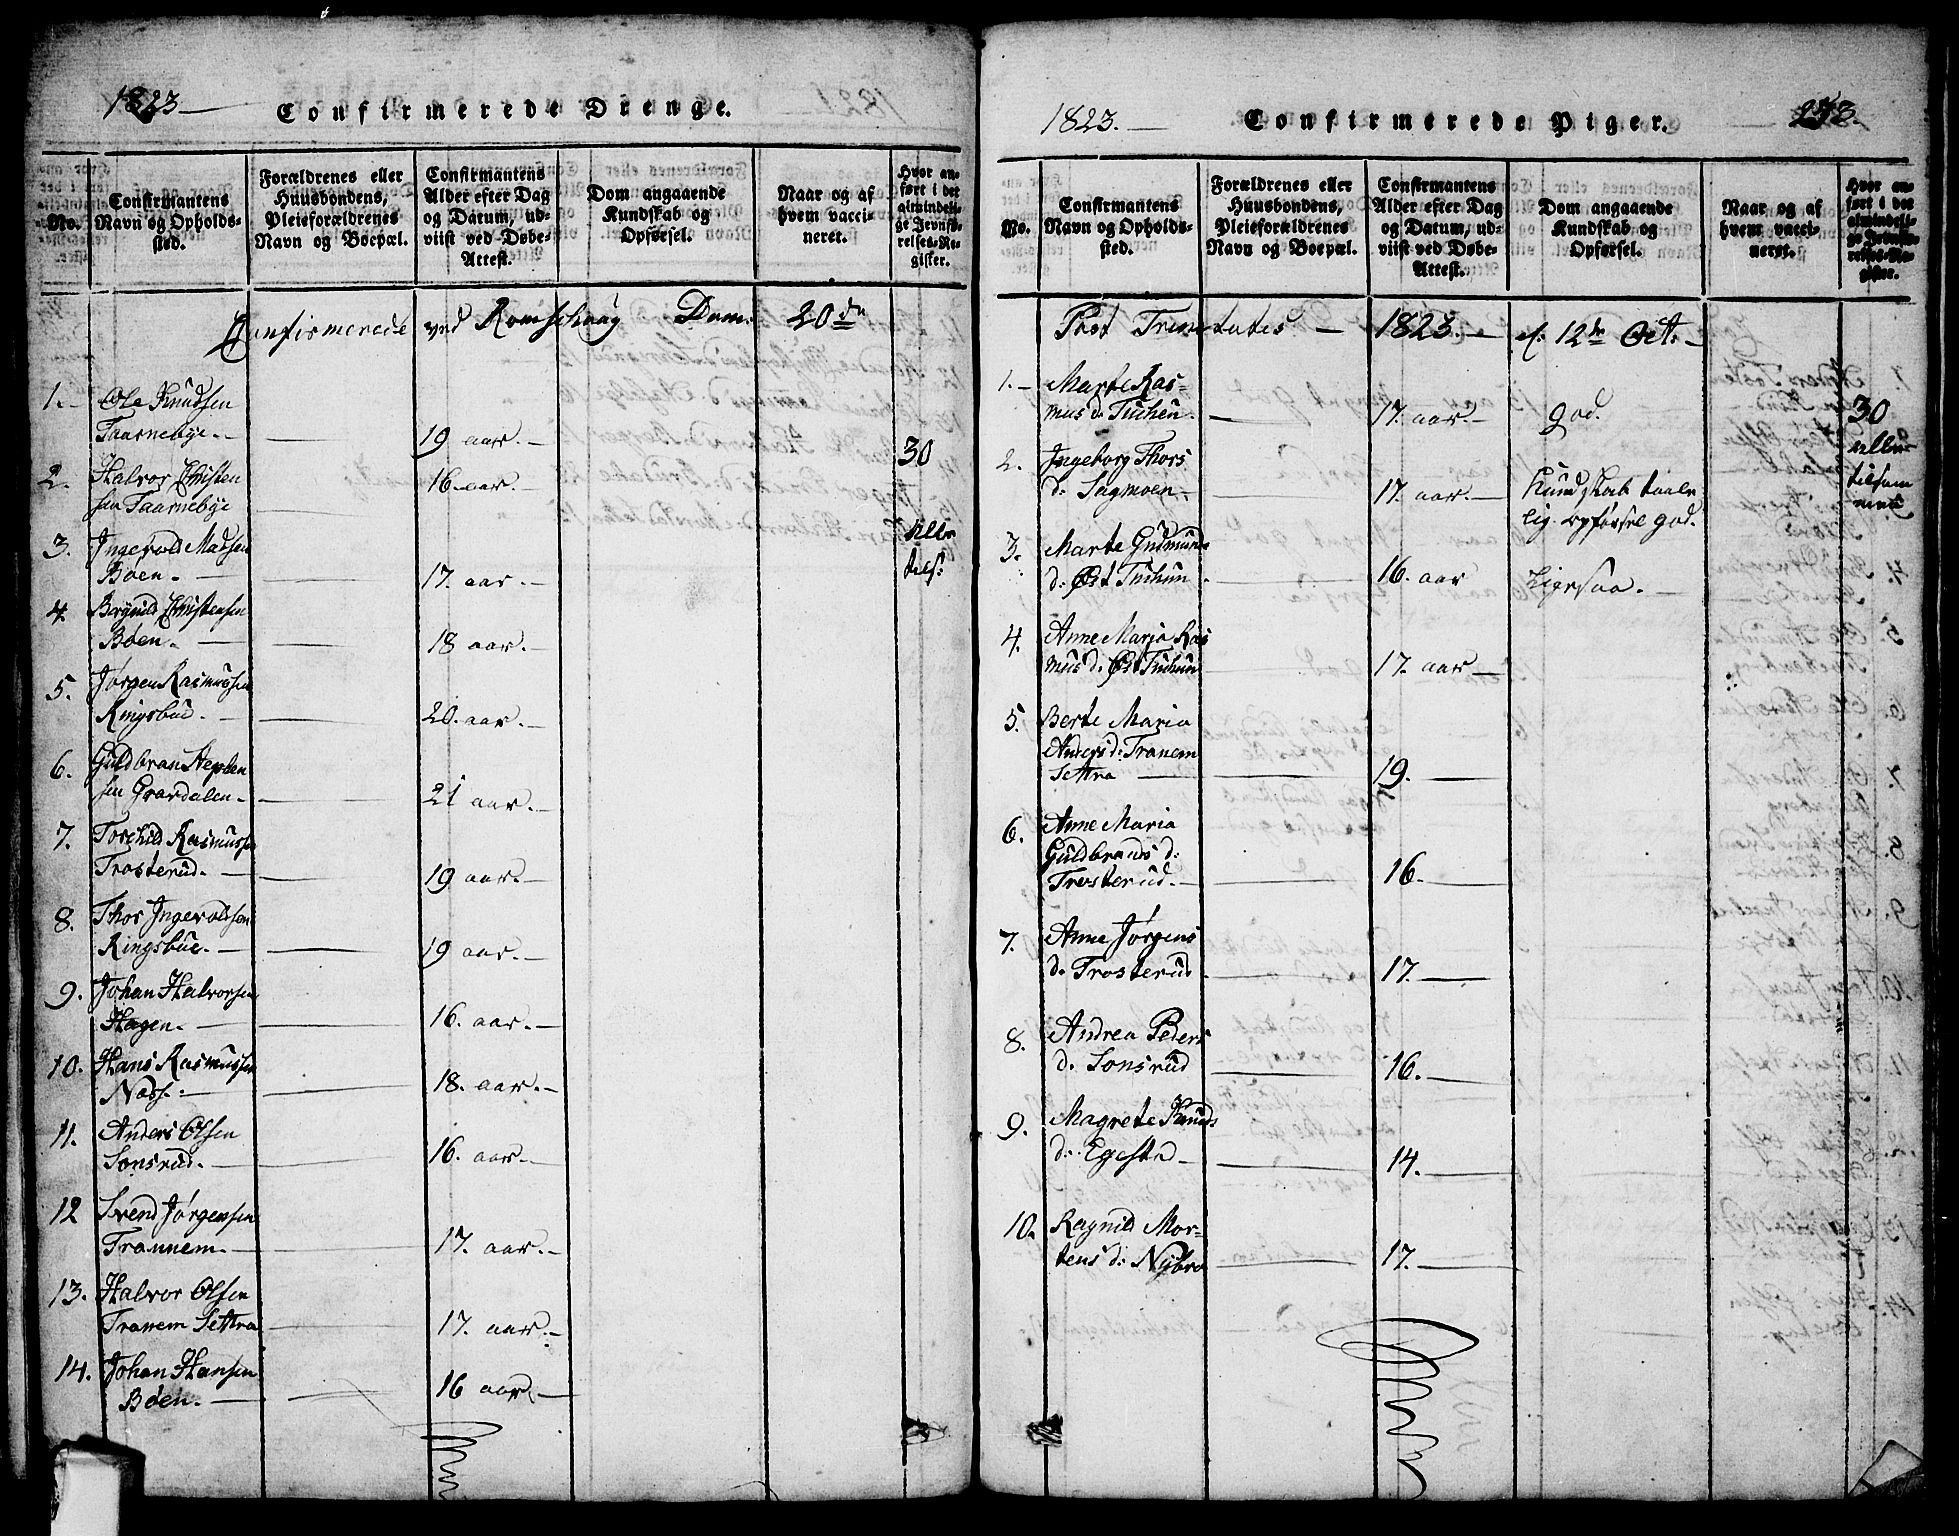 1823
Confirmerede Drenge.
No.
Confirmantens
Navn og Opholds-
sted.
Forældrenes eller
Huusbondens,
Pleieforældrenes
Navn og Boepæl.
Confirmantens
Alder efter Dag
og Datum, ud-
viist ved Døbe-
Attest.
Dom angaaende
Kundskab og
Opførsel.
Naar og af
hvem vacci-
neret.
Hvor an-
ført i det
almindeli-
ge Jevnfø-
relses-Re-
gister.
Confirmerede ved Romschoug Dom. 20de
1. Ole Knudsen
Taarnebye. 19 aar.
30
2. Halvor Christen
sen Taarnebye 16 aar.
3. Ingevold Madsen
Bøen. 17. aar.
alle
tils:
4. Berguld Christensen
Bøen. 18 aar.
5. Jørgen Rasmussen
Ringsbue. 20. aar.
6. Guldbran
sen Graadalen. 21 aar.
7. Torchild Rasmussen
Trosterud. 19 aar.
8. Thor Ingevoldsen
Ringsbue. 19 aar.
9. Johan Halvorsen
Hagen. 16. aar.
10. Hans Rasmussen
Næss: 18. aar.
11. Anders Olsen
Sonsrud. 16. aar.
12 Svend Jørgensen
Trannem. 17. aar.
13. Halvor Olsen
Tranem Settra 17. aar.
14. Johan Hansen
Bøen. 16 aar
1823.
Confirmerede Piger.
273.
No.
Confirmantens
Navn og Opholds-
sted.
Forældrenes eller
Huusbondens,
Pleieforældrenes
Navn og Boepæl.
Confirmantens
Alder efter Dag
og Datum, ud-
viist ved Døbe-
Attest.
Dom angaaende
Kundskab og
Opførsel.
Naar og af
hvem vacci-
neret.
Hvor an-
ført i det
almindeli-
ge Jevnfø-
relses-Re-
gister.
Post Trinitates 1823. d. 12te Oct:
1. Marte Ras-
mus d. Tuchen. 17. aar. god. 30
alle
tilsam
men
2. Ingeborg Thors
d: Sagmoen 17. aar. Kundskab taale
lig. opførsel god.
3. Marte Gudmuns
d: Øst Tuchun 16. aar Ligesaa.
4. Anne Maria Ras
mus d: Øst Tuchun 17. aar
5. Berte Maria
Anders d: Tranem
Settra 19.
6. Anne Maria
Guldbrands d:
Trosterud. 16.
7. Anne Jørgens
d: Trosterud 17.
8. Andrea Peders
d. Sonsrud 16.
9. Magrete Knuds
d: Egesta 14.
10. Ragnild Mor-
tens d: Nybro 17.